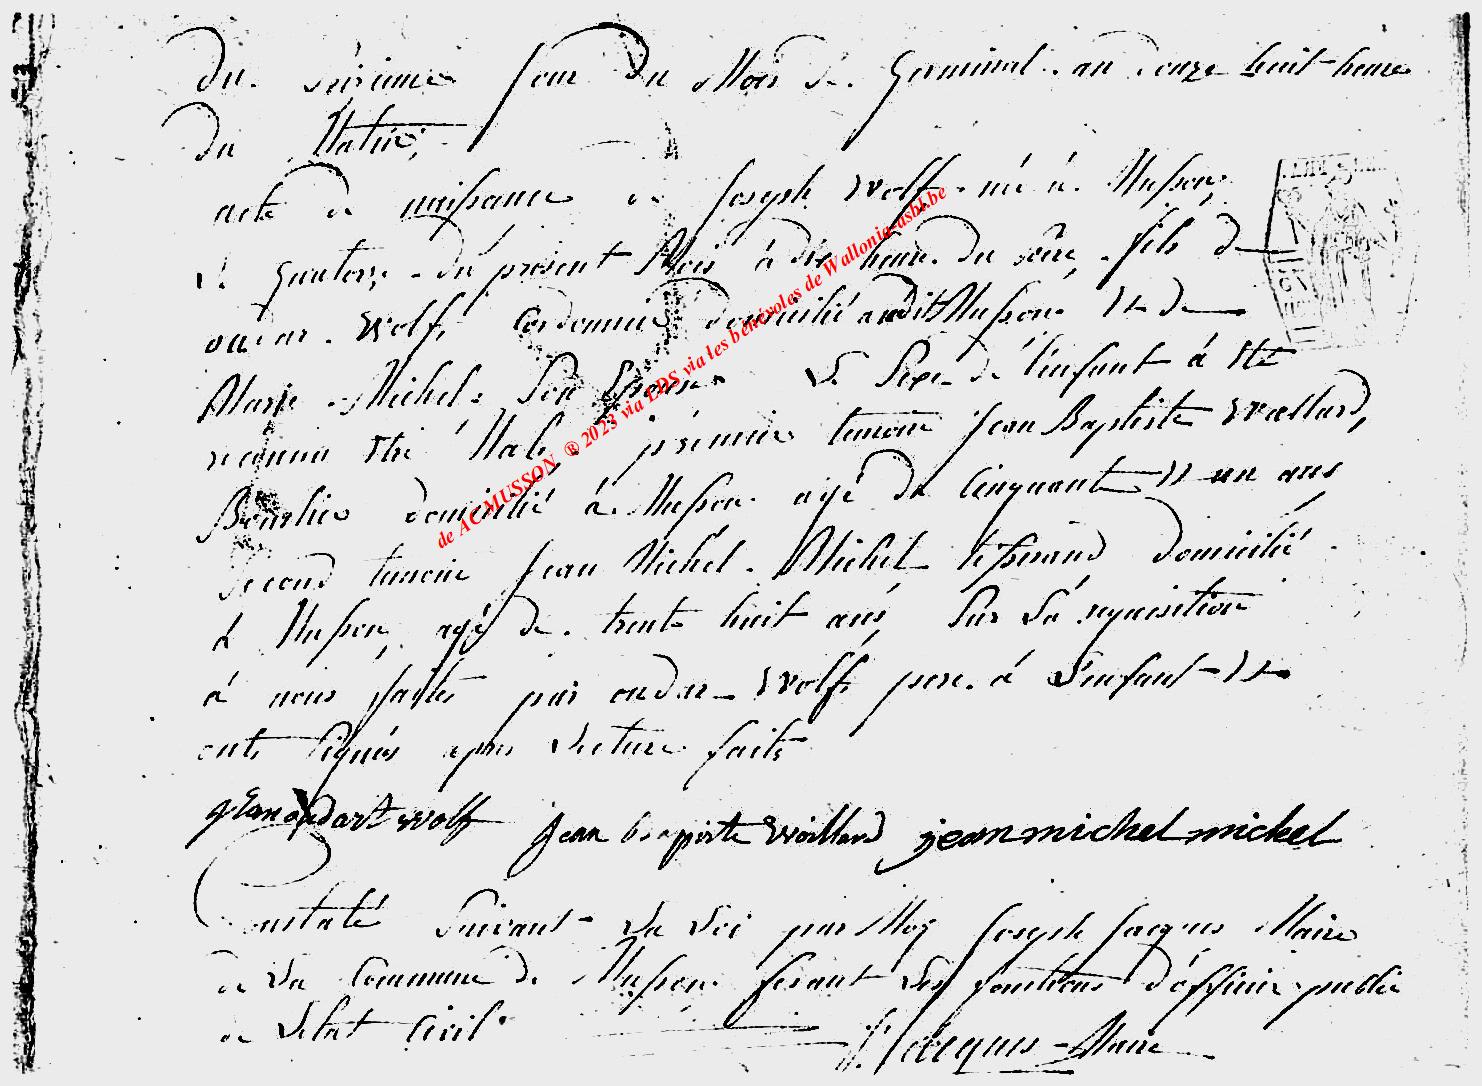 du Séizieme jour du Mois de Germinal an douze huit heure
du Matin,
acte de naissance de Joseph Wolff né à Musson,
Le Quatorze du présent Mois à dix heure du Soire, fils d
oudar Wolff Cordonnie domicilié audit Musson Et de
Marie Michel Son Epouse Le Sexe de l'enfant à Eté
reconnu Etre Male, prémier temoin Jean Baptiste Woillard,
domicilié à Musson agé de Cinquant Et un ans
Second temoin Jean Michel Michel tisserand domicilié
à Musson, agé de trente huit ans, Sur La requisition
à nous faites par oudar Wolff pere à L'enfant Et
onts Signés apres Lecture faite
oudart wolff jean baptiste Woillard jean michel michel
Constaté Suivant La Loi par Moy Joseph Jacques Maire
de La Commune de Musson fesant Les fonctions d'officie public
de Letat Civil
J. Jacques Maire
de AC MUSSON ® 2023 via LDS via les bénévoles de Wallonia-asbl.be